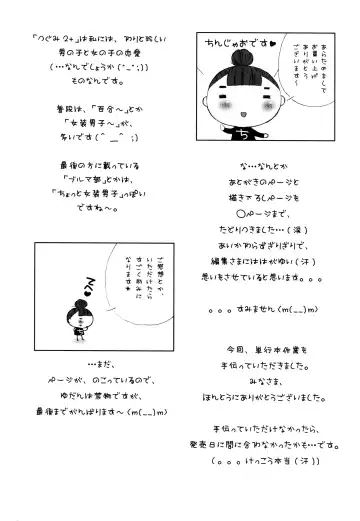 あらためまして
お買い上げ
ありがとう
ございます〜
ちんじゃおです♥
ち
な…なんとか
あとがきのページと
描き下ろしページを
〇ページまで、
たどりつきました…(涙)
あいかわらずぎりぎりで、
編集さまにははがゆい(汗)
思いをさせていると思います。。。
。。。すみません(m(__)m)
今回、単行本作業を
手伝っていただきました。
みなさま、
ほんとうにありがとうございました。
手伝っていただけなかったら、
発売日に間に合わなかったかも…です。
(。。。けっこう本当(汗))
「つぐみ2+」は私には、わりと珍しい
男の子と女の子の恋愛
(…なんでしょうか(^_^;))
ものなんです。
普段は、「百合〜」とか
「女装男子〜」が、
多いです(^__^;)
最後の方に載っている
「ブルマ部」とかは、
「ちょっと女装男子」っぽい
ですね〜。
ご感想とか、
いただけたら
すごく励みに
なります★
…まだ、
ページが、のこっているので、
ゆだんは禁物ですが、
最後までがんばります〜(m(__)m)